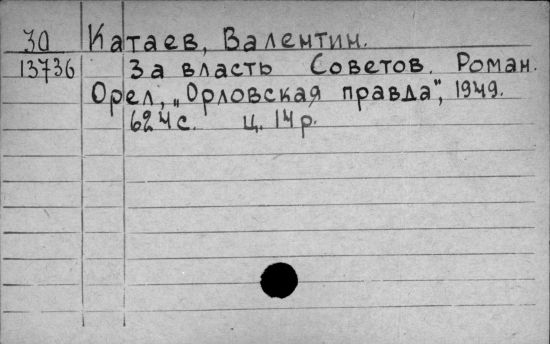 30 Катаев, Валентин.
13736 За власть Советов. Роман.
Орел, „Орловская правда", 1949.
624с. ц. 14р.